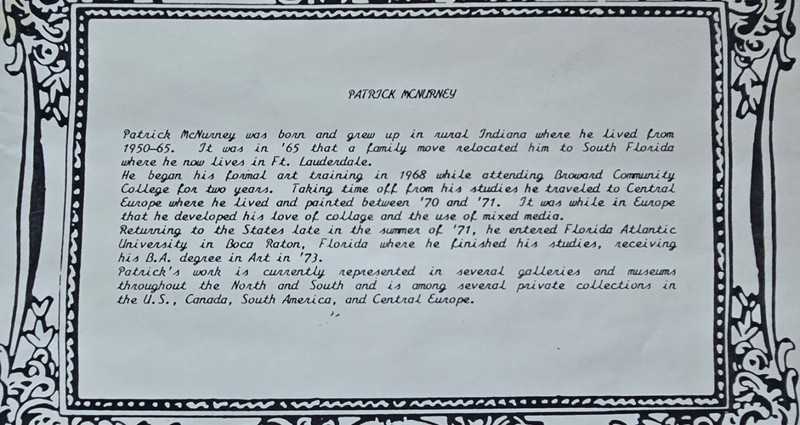 PATRICK McNURNEY
Patrick McNurney was born and grew up in rural Indiana where he lived from
1950-65. It was in '65 that a family move relocated him to South Florida
where he now lives in Ft. Lauderdale.
He began his formal art training in 1968 while attending Broward Community
College for two years. Taking time off from his studies he traveled to Central
Europe where he lived and painted between '70 and '71. It was while in Europe
that he developed his love of collage and the use of mixed media.
Returning to the States late in the summer of '71, he entered Florida Atlantic
University in Boca Raton, Florida where he finished his studies, receiving
his B.A. degree in Art in '73.
Patrick's work is currently represented in several galleries and museums
throughout the North and South and is among several private collections in
the U.S., Canada, South America, and Central Europe.